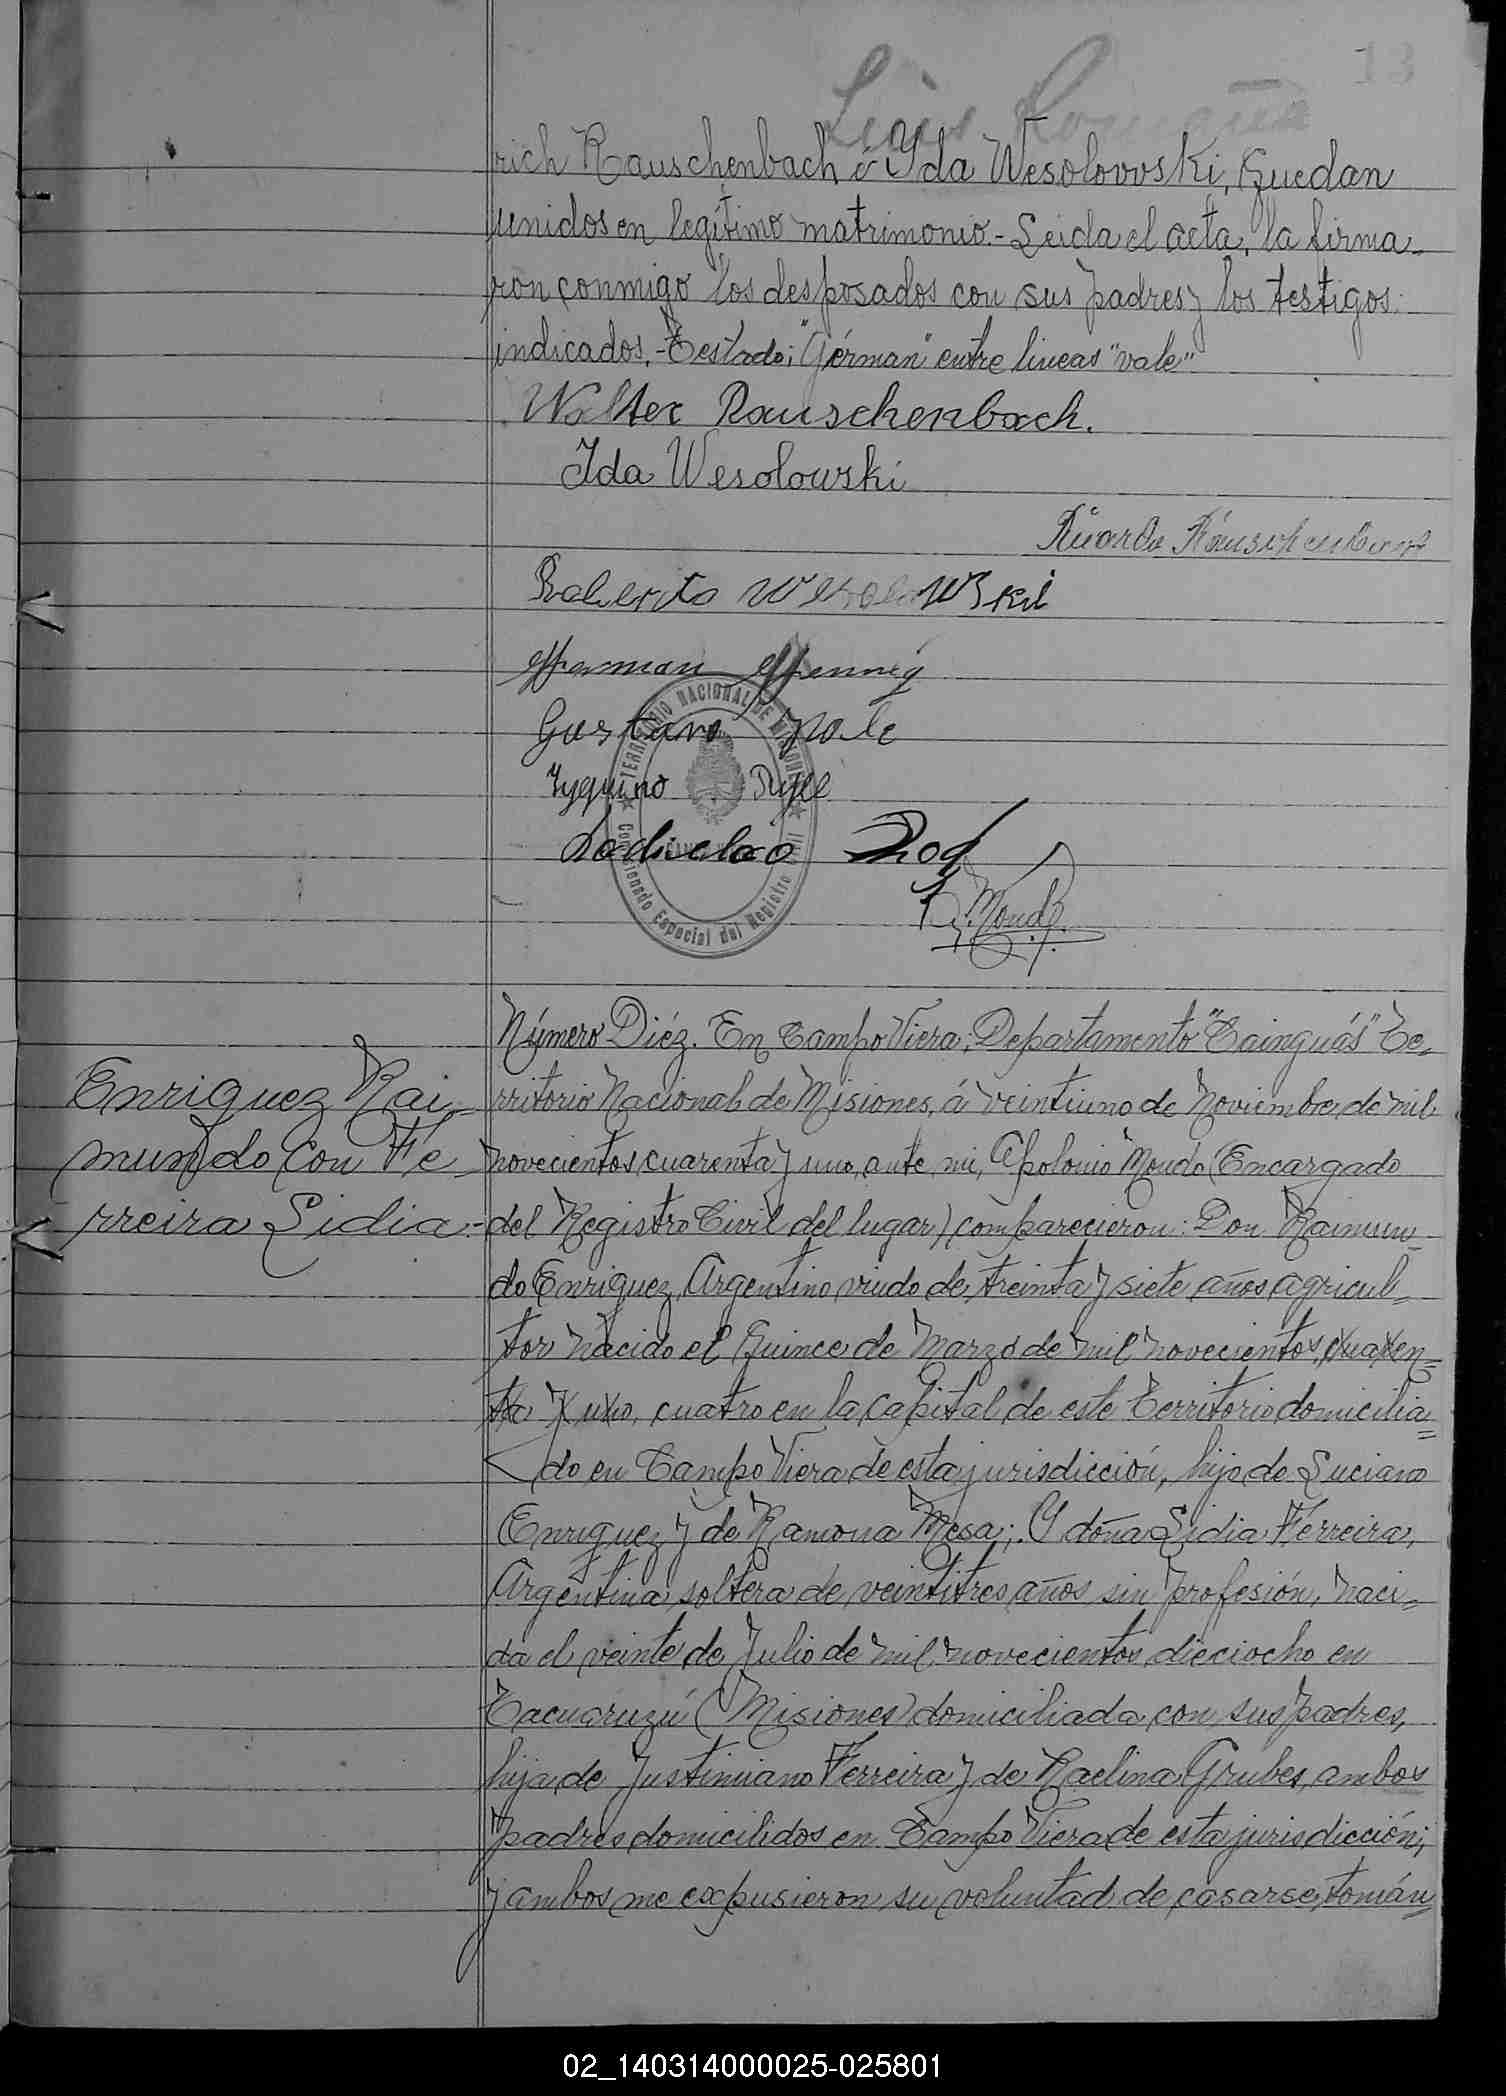 13
Luis Romaña
rich Rauschenbach é Yda Wesolowski, Quedan
unidos en legítimo matrimonio.- Leida el acta, la firma-
ron conmigo los desposados con sus padres y los testigos
indicados.- Testado; "Gérman" entre lineas "vale"
Walter Rauschenbach.
Ida Wesolowski
Ricardo Rauschenbach
Roberto Wesolowski
Herman Hennig
Gustavo
TERRITORIO NACIONAL DE MISIONES
Comisionado Especial del Registro Civil
Ladislao
A. Mondo
Número Diéz. En Campo Viera; Departamento "Cainguás" Te-
rritorio Nacional de Misiones, á veintiuno de Noviembre de mil
novecientos cuarenta y uno, ante mi, Apolonio Mondo (Encargado
del Registro Civil del lugar) comparecieron: Don Raimun-
Enriquez Rai-
mundo con Fe
rreira Lidia.-
do Enriquez, Argentino viudo de, treinta y siete años agricul-
tor nacido el Quince de Marzo de mil novecientos, cuaren-
ta y uno, cuatro en la Capital de este Territorio domicilia-
do en Campo Viera de esta jurisdicción, hijo de Luciano
Enriquez y de Ramona Mesa;. Y doña Lidia Ferreira,
Argentina, soltera de veintitres, años sin profesión, naci-
da el veinte de Julio de mil novecientos dieciocho en
Tacuaruzú (Misiones) domiciliada con sus padres,
hija de Justiniano Ferreira y de Raelina Grubes, ambos
padres domicilidos en Campo Viera de esta jurisdicción;
y ambos me expusieron su voluntad de casarse, tomán-
02_140314000025-025801